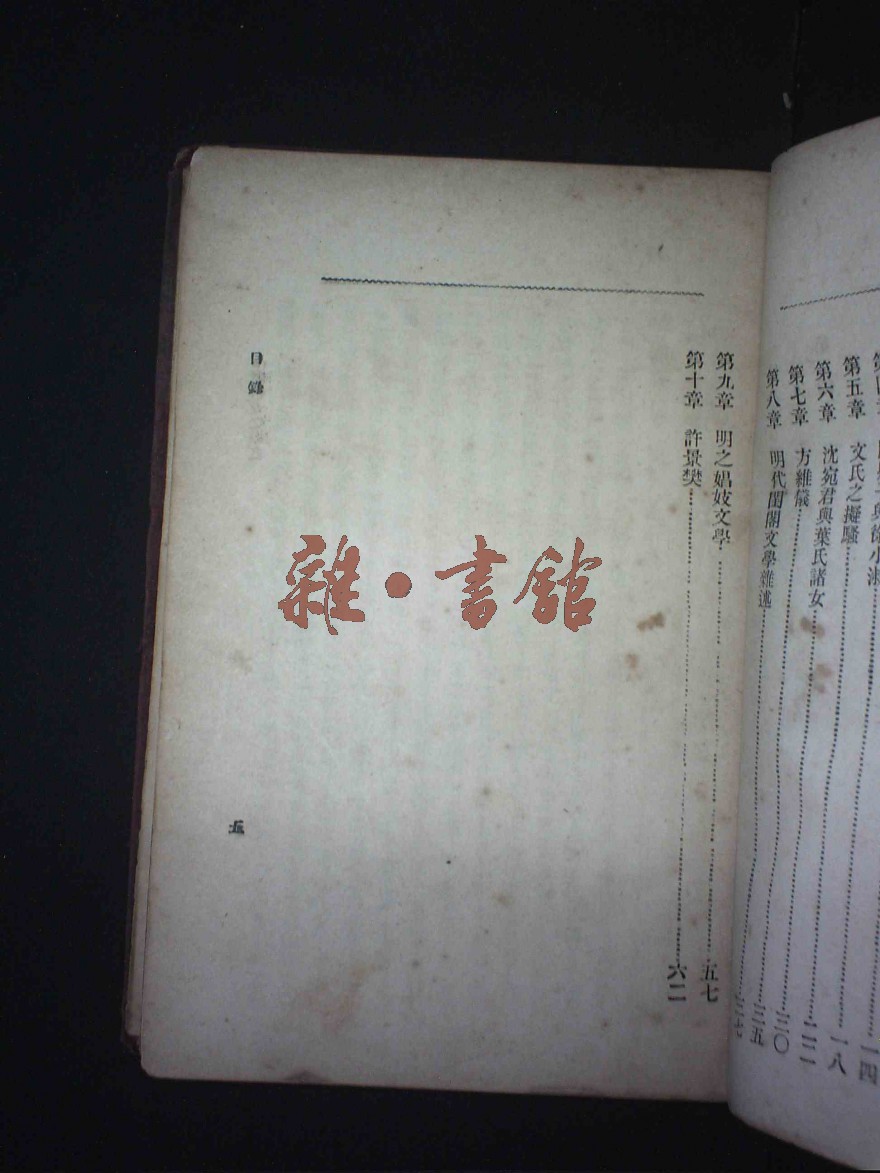 與徐小淑 一四
第五章 文氏之擬騷 一八
第六章 沈宛君與葉氏諸女
第七章 方維儀
第八章 明代閨閣文學雜述
第九章 明之娼妓文學 五七
第十章 許景樊 六二
目錄
五
雜·書館